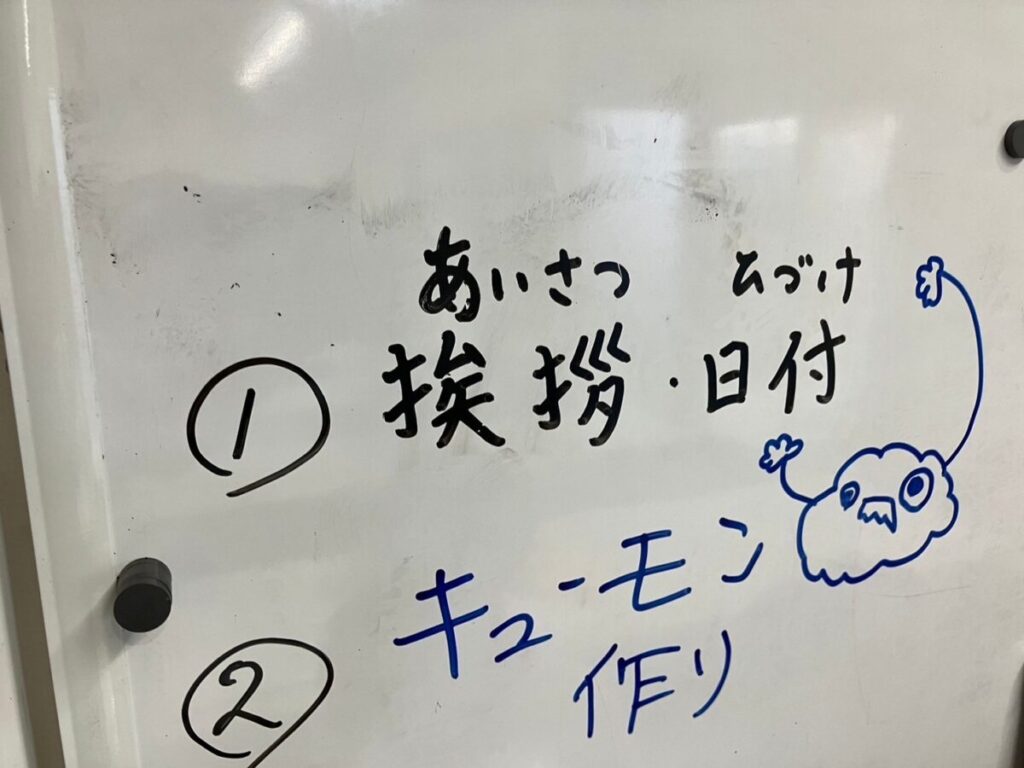 あいさつ ひづけ
① 挨拶・日付
② キューモン
作り